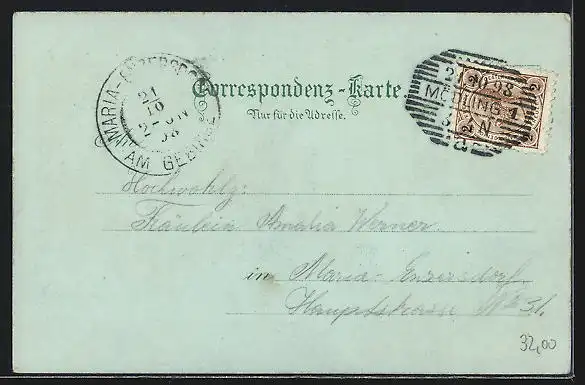 MARIA-ENZERSDORF
AM GEBIRGE
21
10
2-3N
98
Correspondenz-Karte.
Nur für die Adresse.
21 10 98
MÖDLING 1
N
Hochwohlg:
Fräulein Amalia Werner
in Maria-Enzersdorf
Hauptstrasse No 31.
32,00